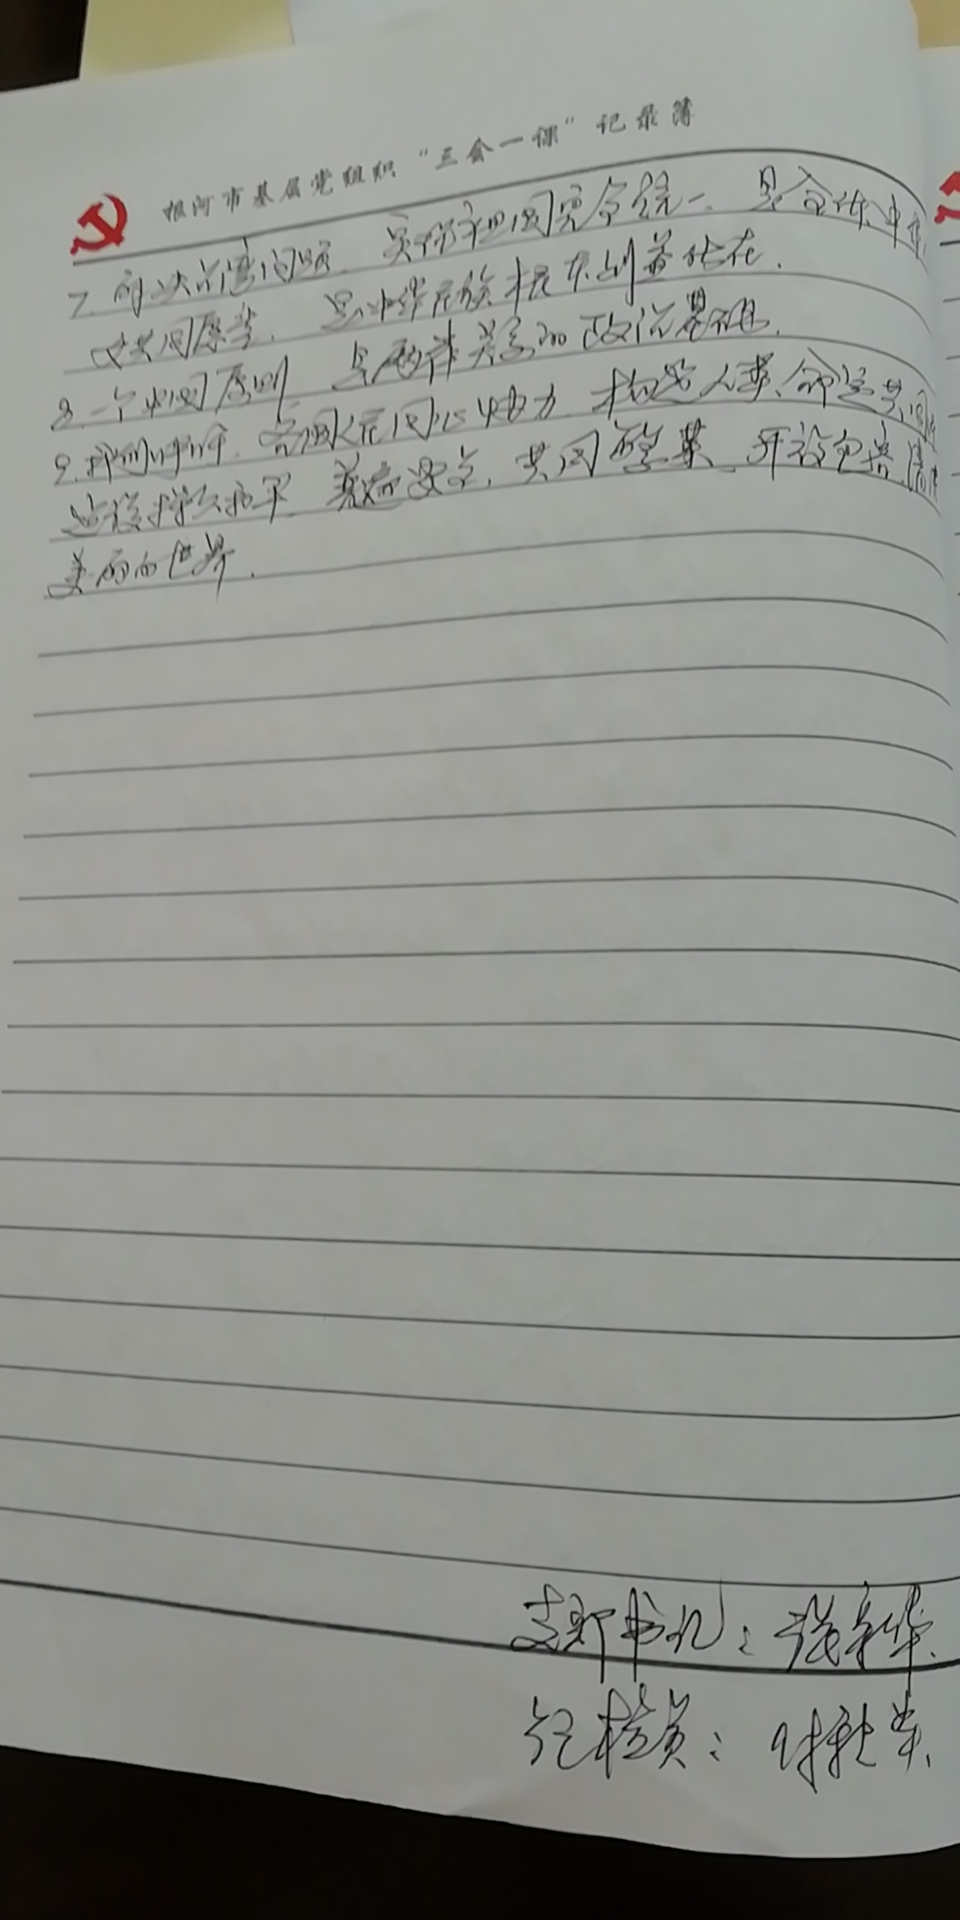 根河市基层党组织“三会一课”记录簿
7. 解决台湾问题、实现祖国完全统一、是全体中华
女共同愿望、是中华民族根本利益所在.
8. 一个中国原则 是两岸关系的政治基础.
9. 我们呼吁. 各国人民同心协力 构建人类命运共同体
建设持久和平 普遍安全, 共同繁荣 开放包容,清洁
美丽的世界.
支部书记: 华
记 员: